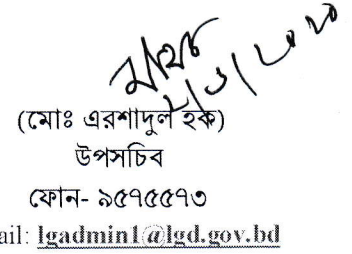 (মোঃ এরশাদুল হক)
উপসচিব
ফোন- ৯৫৭৫৫৭৩
ail: lgadmin1@lgd.gov.bd